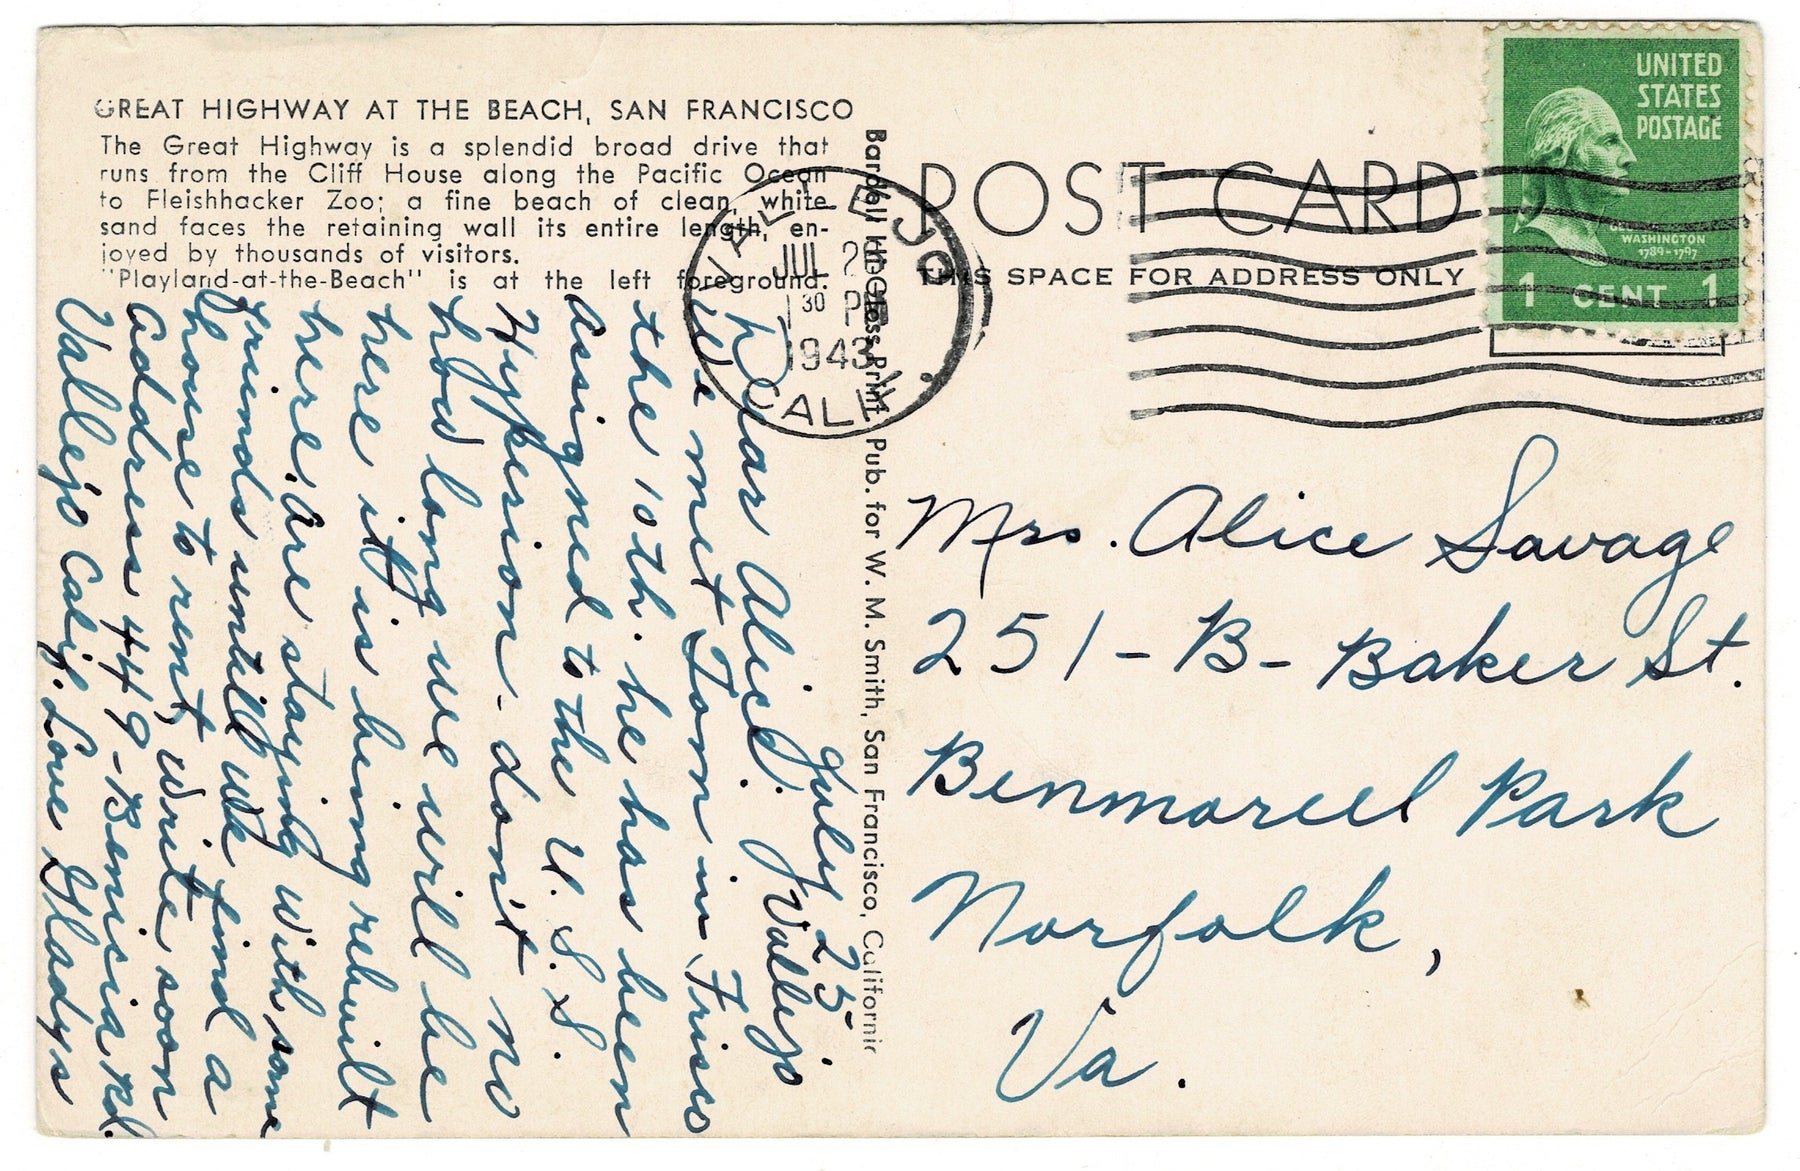 GREAT HIGHWAY AT THE BEACH, SAN FRANCISCO
The Great Highway is a splendid broad drive that
runs from the Cliff House along the Pacific Ocean
to Fleishhacker Zoo; a fine beach of clean, white
sand faces the retaining wall its entire length, en-
joyed by thousands of visitors.
"Playland-at-the-Beach" is at the left foreground.
July 25
Dear Alice. Vallejo
We met Tom in Frisco
the 10th. he has been
assigned to the U.S.S.
Hyperion - don't no
how long we will be
here it is being rebuilt
here. Are staying with some
friends untill we find a
house to rent, write soon
Address 449 - Benicia Rd.
Vallejo Calif. Love Gladys
Bardell Pub. for W. M. Smith, San Francisco, California
VALLEJO
JUL 2
1 30 P
1943
CALIF.
POST CARD
THIS SPACE FOR ADDRESS ONLY
UNITED
STATES
POSTAGE
WASHINGTON
1789-1797
1 CENT 1
Mrs. Alice Savage
251-B- Baker St.
Benmoreell Park
Norfolk,
Va.